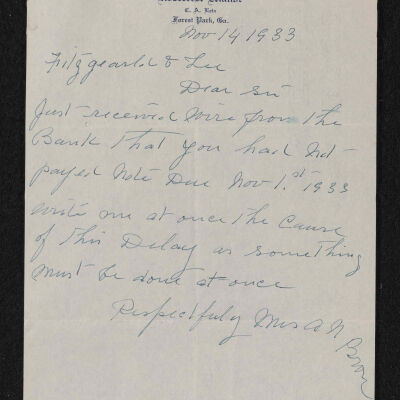 Forest Park, Ga.
Nov 14 1933
Fitzgearld & Lee
Dear Sir
Just received wire from the
Bank that you had not
payed Note Due Nov 1.st 1933
write me at once the Cause
of this Delay as something
must be done at once
Respectfuly Mrs A N